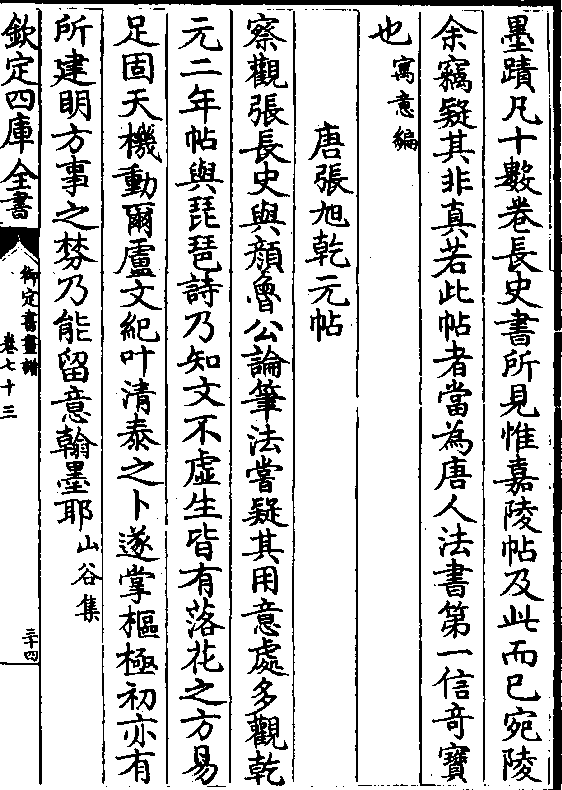 墨蹟凡十數卷長史書所見惟嘉陵帖及此而已宛陵
余竊疑其非真若此帖者當為唐人法書第一信奇寶
也寓意編
唐張旭乾元帖
察觀張長史與顔魯公論筆法嘗疑其用意處多觀乾
元二年帖與琵琶詩乃知文不虛生皆有落花之方易
足固天機動爾盧文紀叶清泰之卜遂掌樞極初亦有
所建明方事之棼乃能留意翰墨耶山谷集
欽定四庫全書
御定書畫譜
卷七十三
三十四